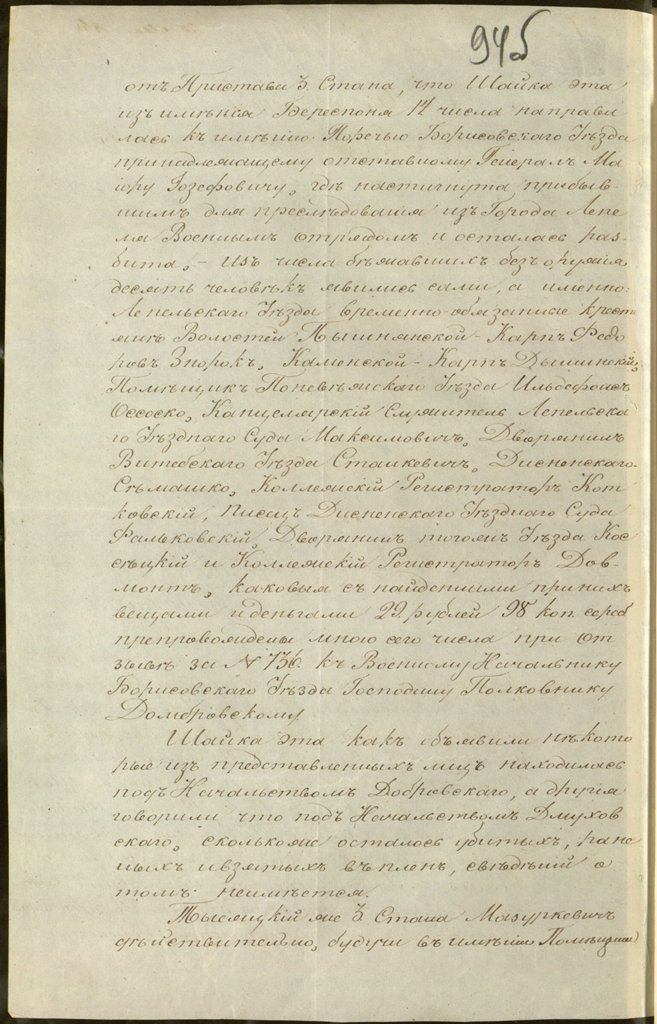 94б
отъ Пристава 3. Стана, что Шайка эта
изъ имѣнія Береспоня 14 числа направи
лась къ имѣнію Порѣчью Борисовскаго Уѣзда
принадлежащему отставному Генералъ Ма
іору Іозефовичу, гдѣ настигнута прибыв-
шимъ для преслѣдованія изъ Города Лепе
ля Военнымъ отрядомъ и осталась раз-
бита, – изъ числа бѣжавшихъ безъ оружія
десять человѣкъ явились сами, а именно:
Лепельскаго Уѣзда временно-обязанные крест
яне Волостей Пышнянской – Карпъ Федо
ровъ Знорокъ, Каменской – Карпъ Дышинскій,
Помѣщикъ Поневѣжскаго Уѣзда Ильдефонсъ
Оссоско, Канцелярскій Служитель Лепельска
го Уѣзднаго Суда Максимовичъ, Дворянинъ
Витебскаго Уѣзда Станкевичъ, Дисненскаго
Сѣмашко, Коллежскій Регистраторъ Кот
ковскій, Писецъ Дисненскаго Уѣзднаго Суда
Фальковскій, Дворянинъ тогожъ Уѣзда Кос
сѣцкій и Коллежскій Регистраторъ Дов-
монтъ, каковыя съ найденными при нихъ
вещами и деньгами 29 рублей 98 коп. сереб
препровождены мною сего числа при от
зывѣ за № 736. къ Военному Начальнику
Борисовскаго Уѣзда Господину Полковнику
Домбровскому
Шайка эта какъ объявили нѣкото
рые изъ представленныхъ лицъ находилась
подъ Начальствомъ Добровскаго, а другія
говорили что подъ Начальствомъ Дмухов
скаго, сколькоже осталось убитыхъ, ране
ныхъ и взятыхъ въ плен, свѣдѣній о
томъ неимѣется.
Тысяцкій же 3 Стана Мазуркевичъ
дѣйствительно, будучи въ имѣніи Помѣщицы